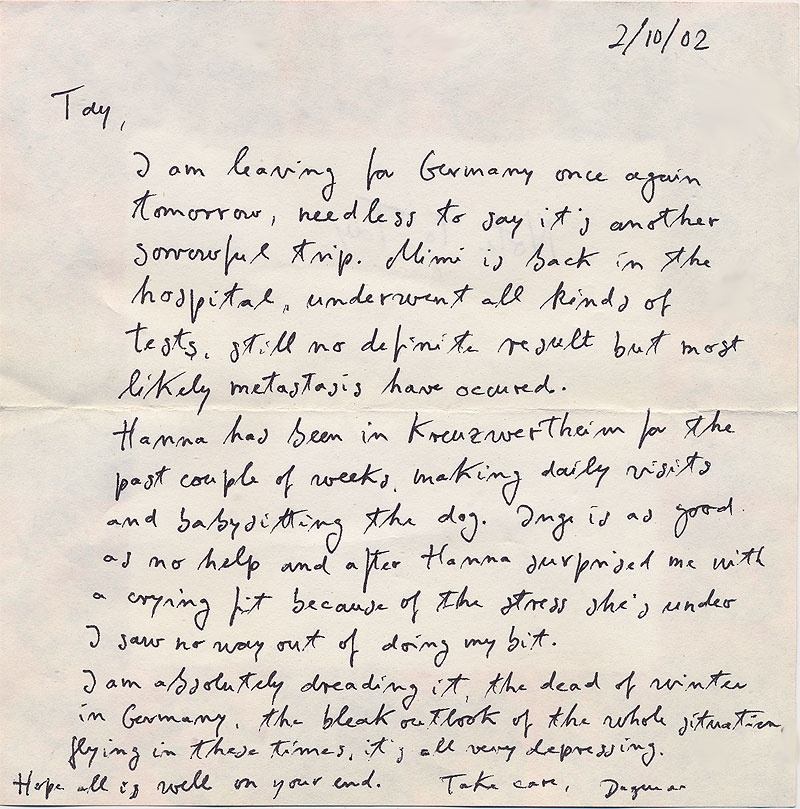 2/10/02
Tdy,
I am leaving for Germany once again
tomorrow, needless to say it's another
sorrowful trip. Mimi is back in the
hospital, underwent all kinds of
tests, still no definite result but most
likely metastasis have occured.
Hanna has been in Kreuzwertheim for the
past couple of weeks, making daily visits
and babysitting the dog. Inge is as good
as no help and after Hanna surprised me with
a crying fit because of the stress she's under
I saw no way out of doing my bit.
I am absolutely dreading it, the dead of winter
in Germany, the bleak outlook of the whole situation,
flying in these times, it's all very depressing.
Hope all is well on your end. Take care, Dagmar